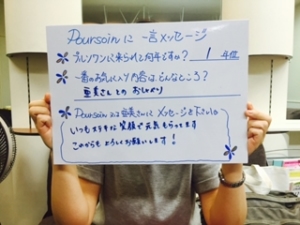 Poursoinに一言メッセージ
プルソワンに来られて何年ですか？ 1年位
一番のお気に入り内容は、どんなところ？
亜美さんとのおしゃべり
Poursoin又は亜美さんにメッセージを下さい
いつもステキな笑顔で元気もらってます
これからもよろしくお願いします！